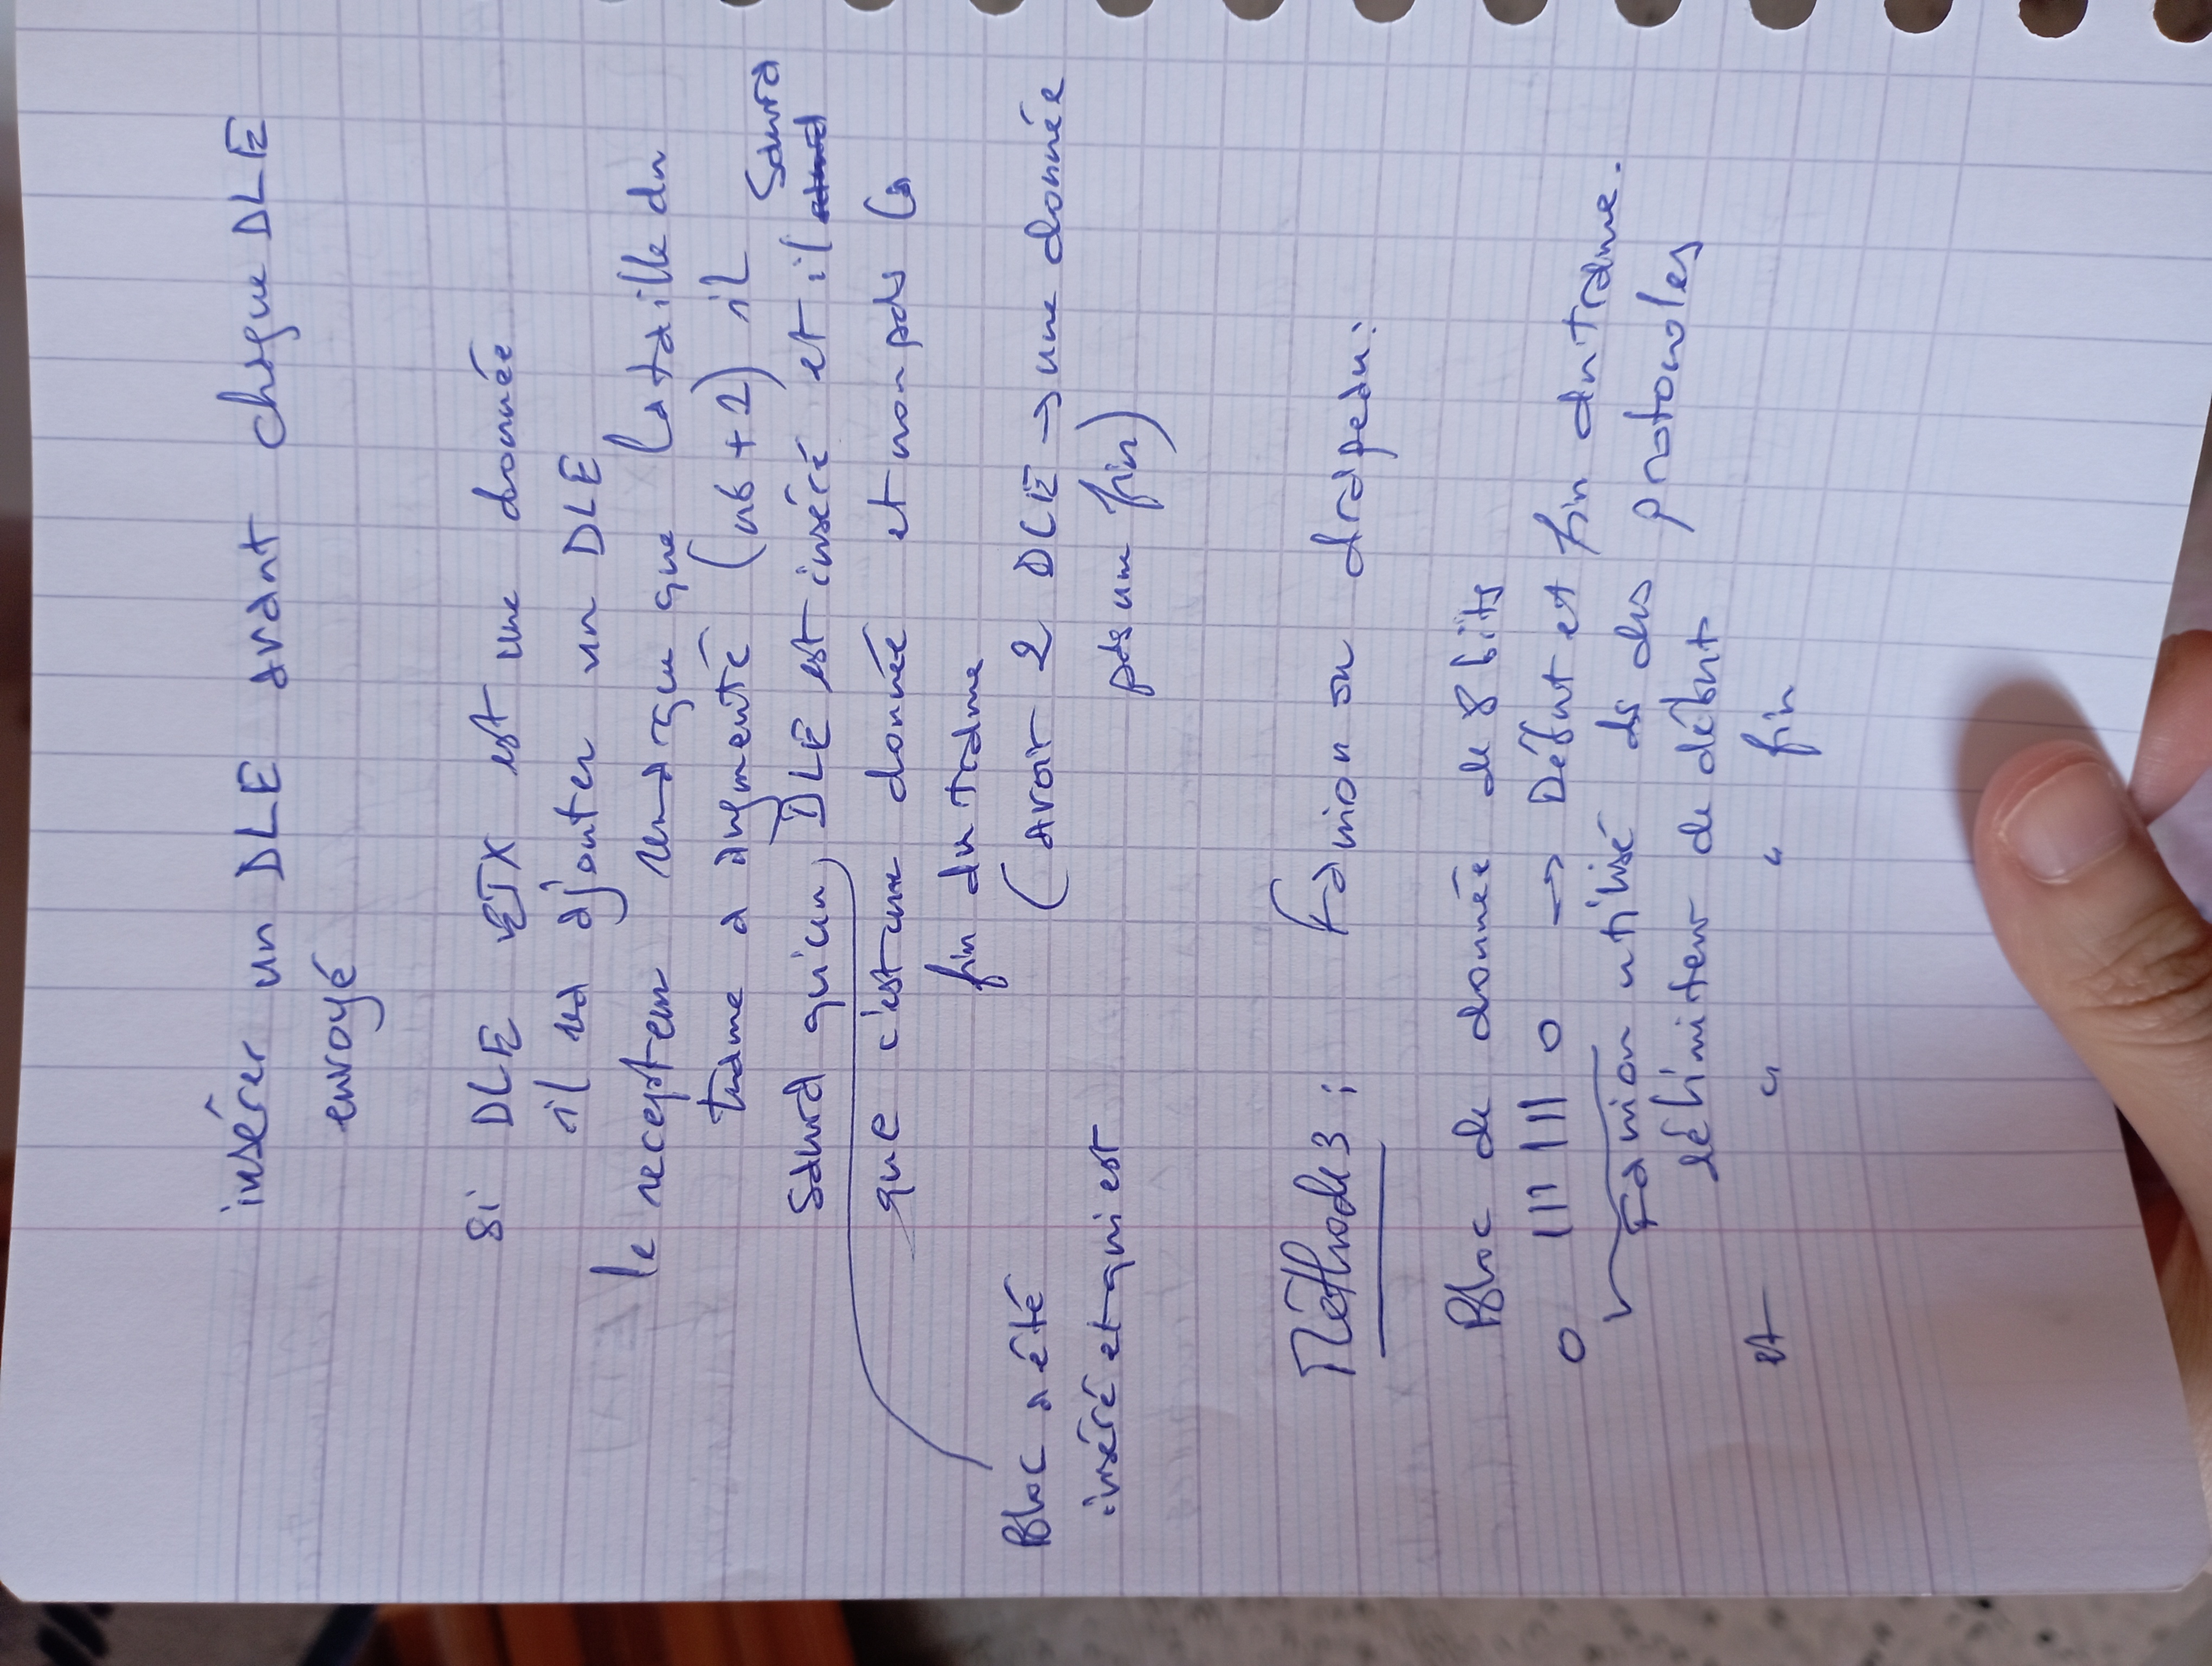 insérer un DLE avant chaque DLE
envoyé
si DLE ETX est une donnée
il va ajouter un DLE
le recepteur remarque que la taille du
trame a augmenté (nb + 2) il
saura qu'un DLE est inséré et il saura
que c'est une donnée et non pas la
fin du trame
Bloc a été
inséré et qui est
(avoir 2 DLE → une donnée
pas une fin)
Méthode 3 : Fanion ou drapeau :
Bloc de donnée de 8 bits
0 111 111 0 → Début et fin du trame.
Fanion utilisé ds des protocoles
délimiteur de début
et " " fin